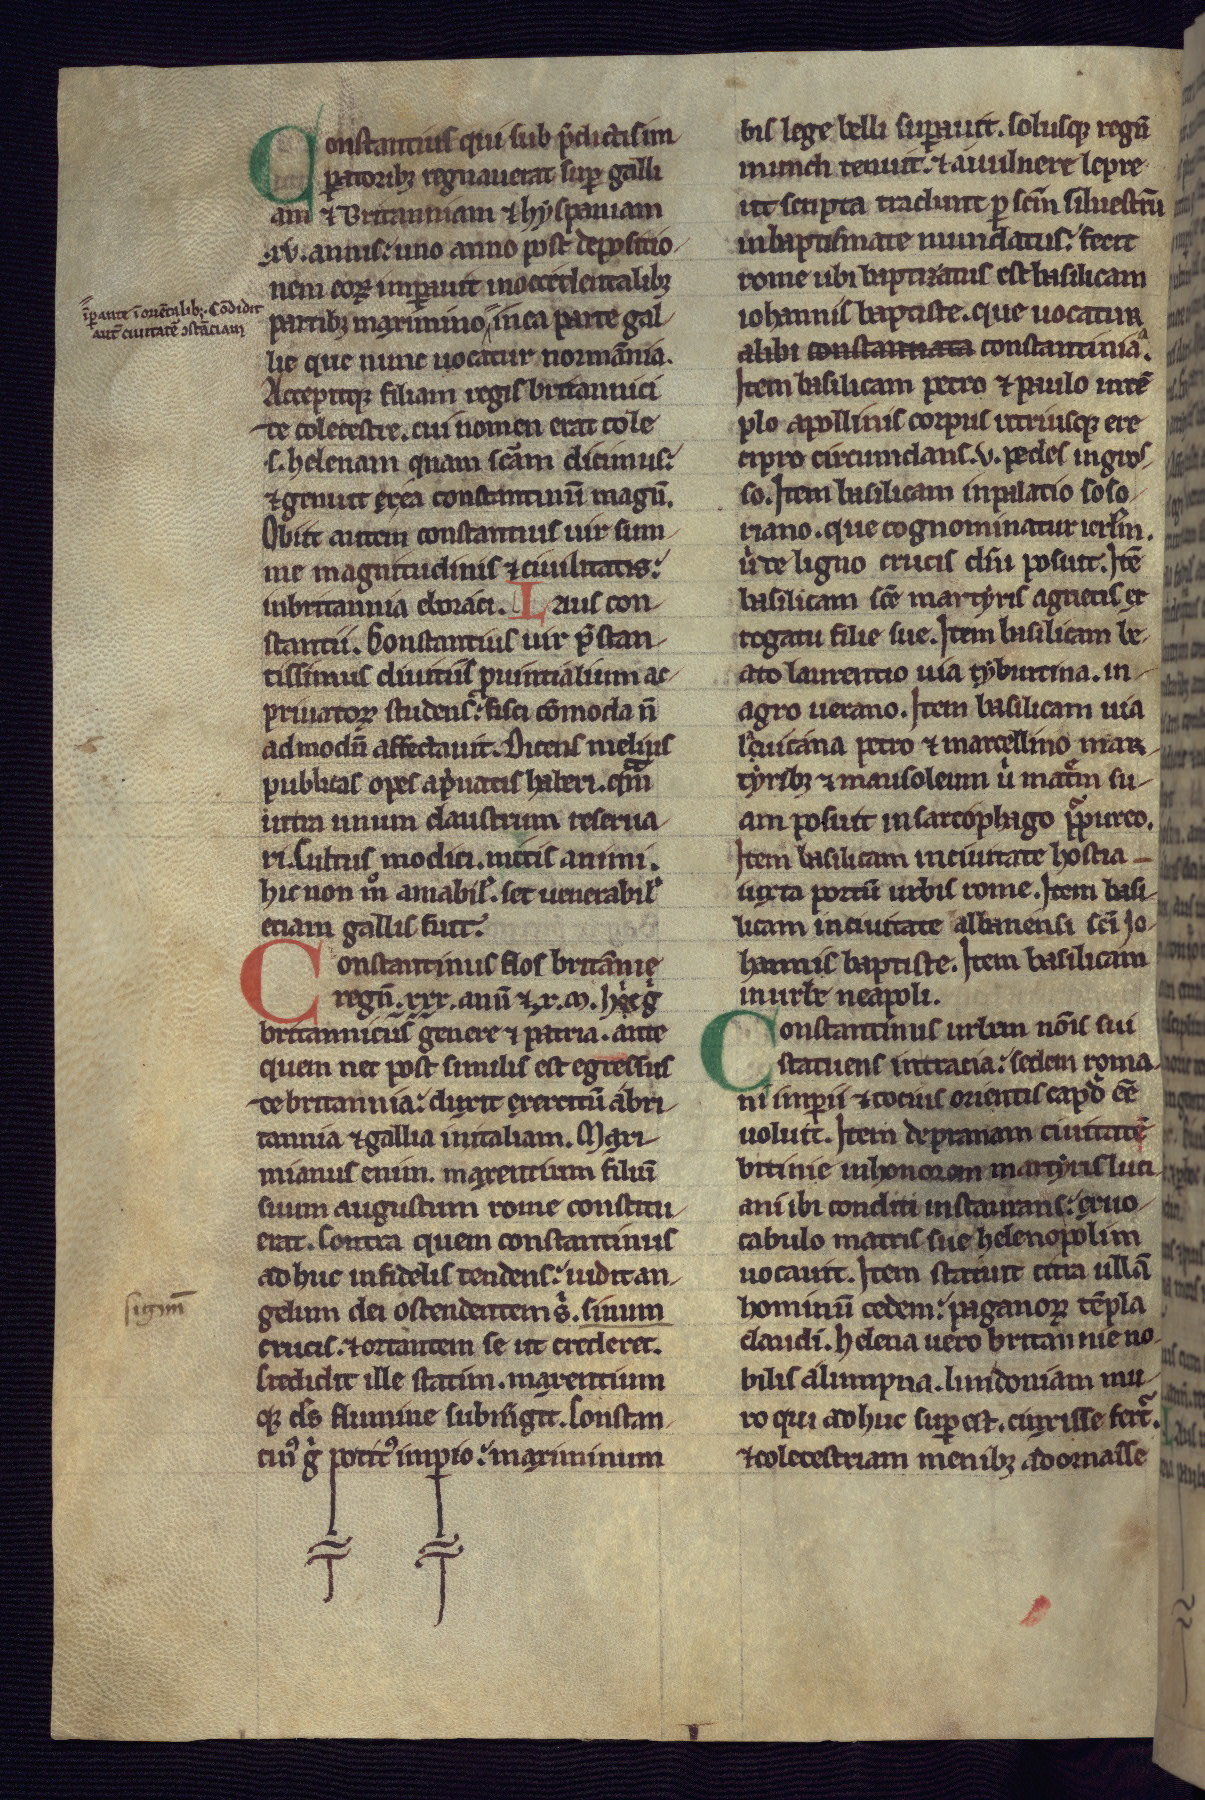 Constantius qui sub p̄dictis im
ꝑatoribꝫ regnauerat suꝑ galli
am ⁊ Britanniam ⁊ hyspaniam
.xv. annis: uno anno post depositio
nem eoꝝ imꝑauit in occidentalibꝫ
partibꝫ maximino, in ea parte gal
lie que nunc uocatur normānia.
Accepitqꝫ filiam regis britannici
de colecestre. cui nomen erat cole
.s. helenam quam sc̄am dicimus:
⁊ genuit ex ea constantinū magū.
Obiit autem constantius uir sum
me magnitudinis ⁊ ciuilitatis:
in britannia eboraci. Laus con
stantii. Constantius uir p̄stan
tissimus diuitiis ꝓuintialium ac
priuatoꝝ studens: fisci cōmoda n̄
admodū affectauit. Dicens melius
publicas opes a p̄uatis haberi. qm̄
intra unum claustrum reserua
ri. Cultus modici. mitis animi.
hic non m̊ amabil᾽. set uenerabil᾽
etiam gallis fuit.
Constantinus flos britānię
regn̄. xxx. annū ⁊ .x. m̄. Hic g̊
britannicus genere ⁊ patria. ante
quem nec post similis est egressus
de britannia: duxit exercitū a bri
tannia ⁊ gallia in italiam. Maxi
mianus enim. maxentium filiū
suum augustum rome constitu
erat. Contra quem constantinus
adhuc infidelis tendens: uidit an
gelum dei ostendentem s̓. sinum
crucis. ⁊ ortantem se ut crederet.
Credidit ille statim. maxentium
qꝫ ds̄ flumine subm̄git. Constan
tin᾽ g̊ potit᾽ imꝑio: maximinum
īꝑante ī orīetalibꝫ. Cōdidit
aut̄ ciuitatē ꝯstāciam
signū
bis lege belli suꝑauit. solusqꝫ regn̄
mundi tenuit. ⁊ a uulnere lepre
ut scripta tradunt ꝑ sc̄m siluestrū
in baptismate mundatus: fecit
rome ubi baptizatus est basilicam
iohannis baptiste. que uocatur
alibi constantiata constantiniāa.
Item basilicam petro ⁊ paulo in tē
plo apollinis corpus utriusqꝫ ere
cipro circumdans .v. pedes in gros
so. Item basilicam in palatio soso
riano. que cognominatur ierl̄m.
ů de ligno crucis dn̄i posuit. Itē
basilicam sc̄e martyris agnetis ex
rogatu filie sue. Item basilicam be
ato laurentio uia tyburtina. in
agro uerano. Item basilicam uia
lauicana petro ⁊ marcellino mar
tyribꝫ ⁊ mausoleum ů matr̄m su
am posuit in sarcophago pͣpureo.
Item basilicam in ciuitate hostia
iuxta portū urbis rome. Item basi
licam in ciuitate albanensi sc̄i Jo
hannis baptiste. Item basilicam
in urbe neapoli.
Constantinus urbem nōis sui
statuens in tracia: sedem roma
ni imꝑii ⁊ tocius orientis capđ eē
uoluit. Item depranam ciuitatē
bitinie in honorem martyris luci
ani ibi conditi instaurans: ex uo
cabulo matris sue helenopolim
uocauit. Item statuit citra ullā
hominū cedem: paganoꝝ tēpla
claudi. helena uero britannie no
bilis alumpna. lundoniam mu
ro qui adhuc suꝑ est. cinxisse fert᾽.
⁊ colecestriam menibꝫ adornasse